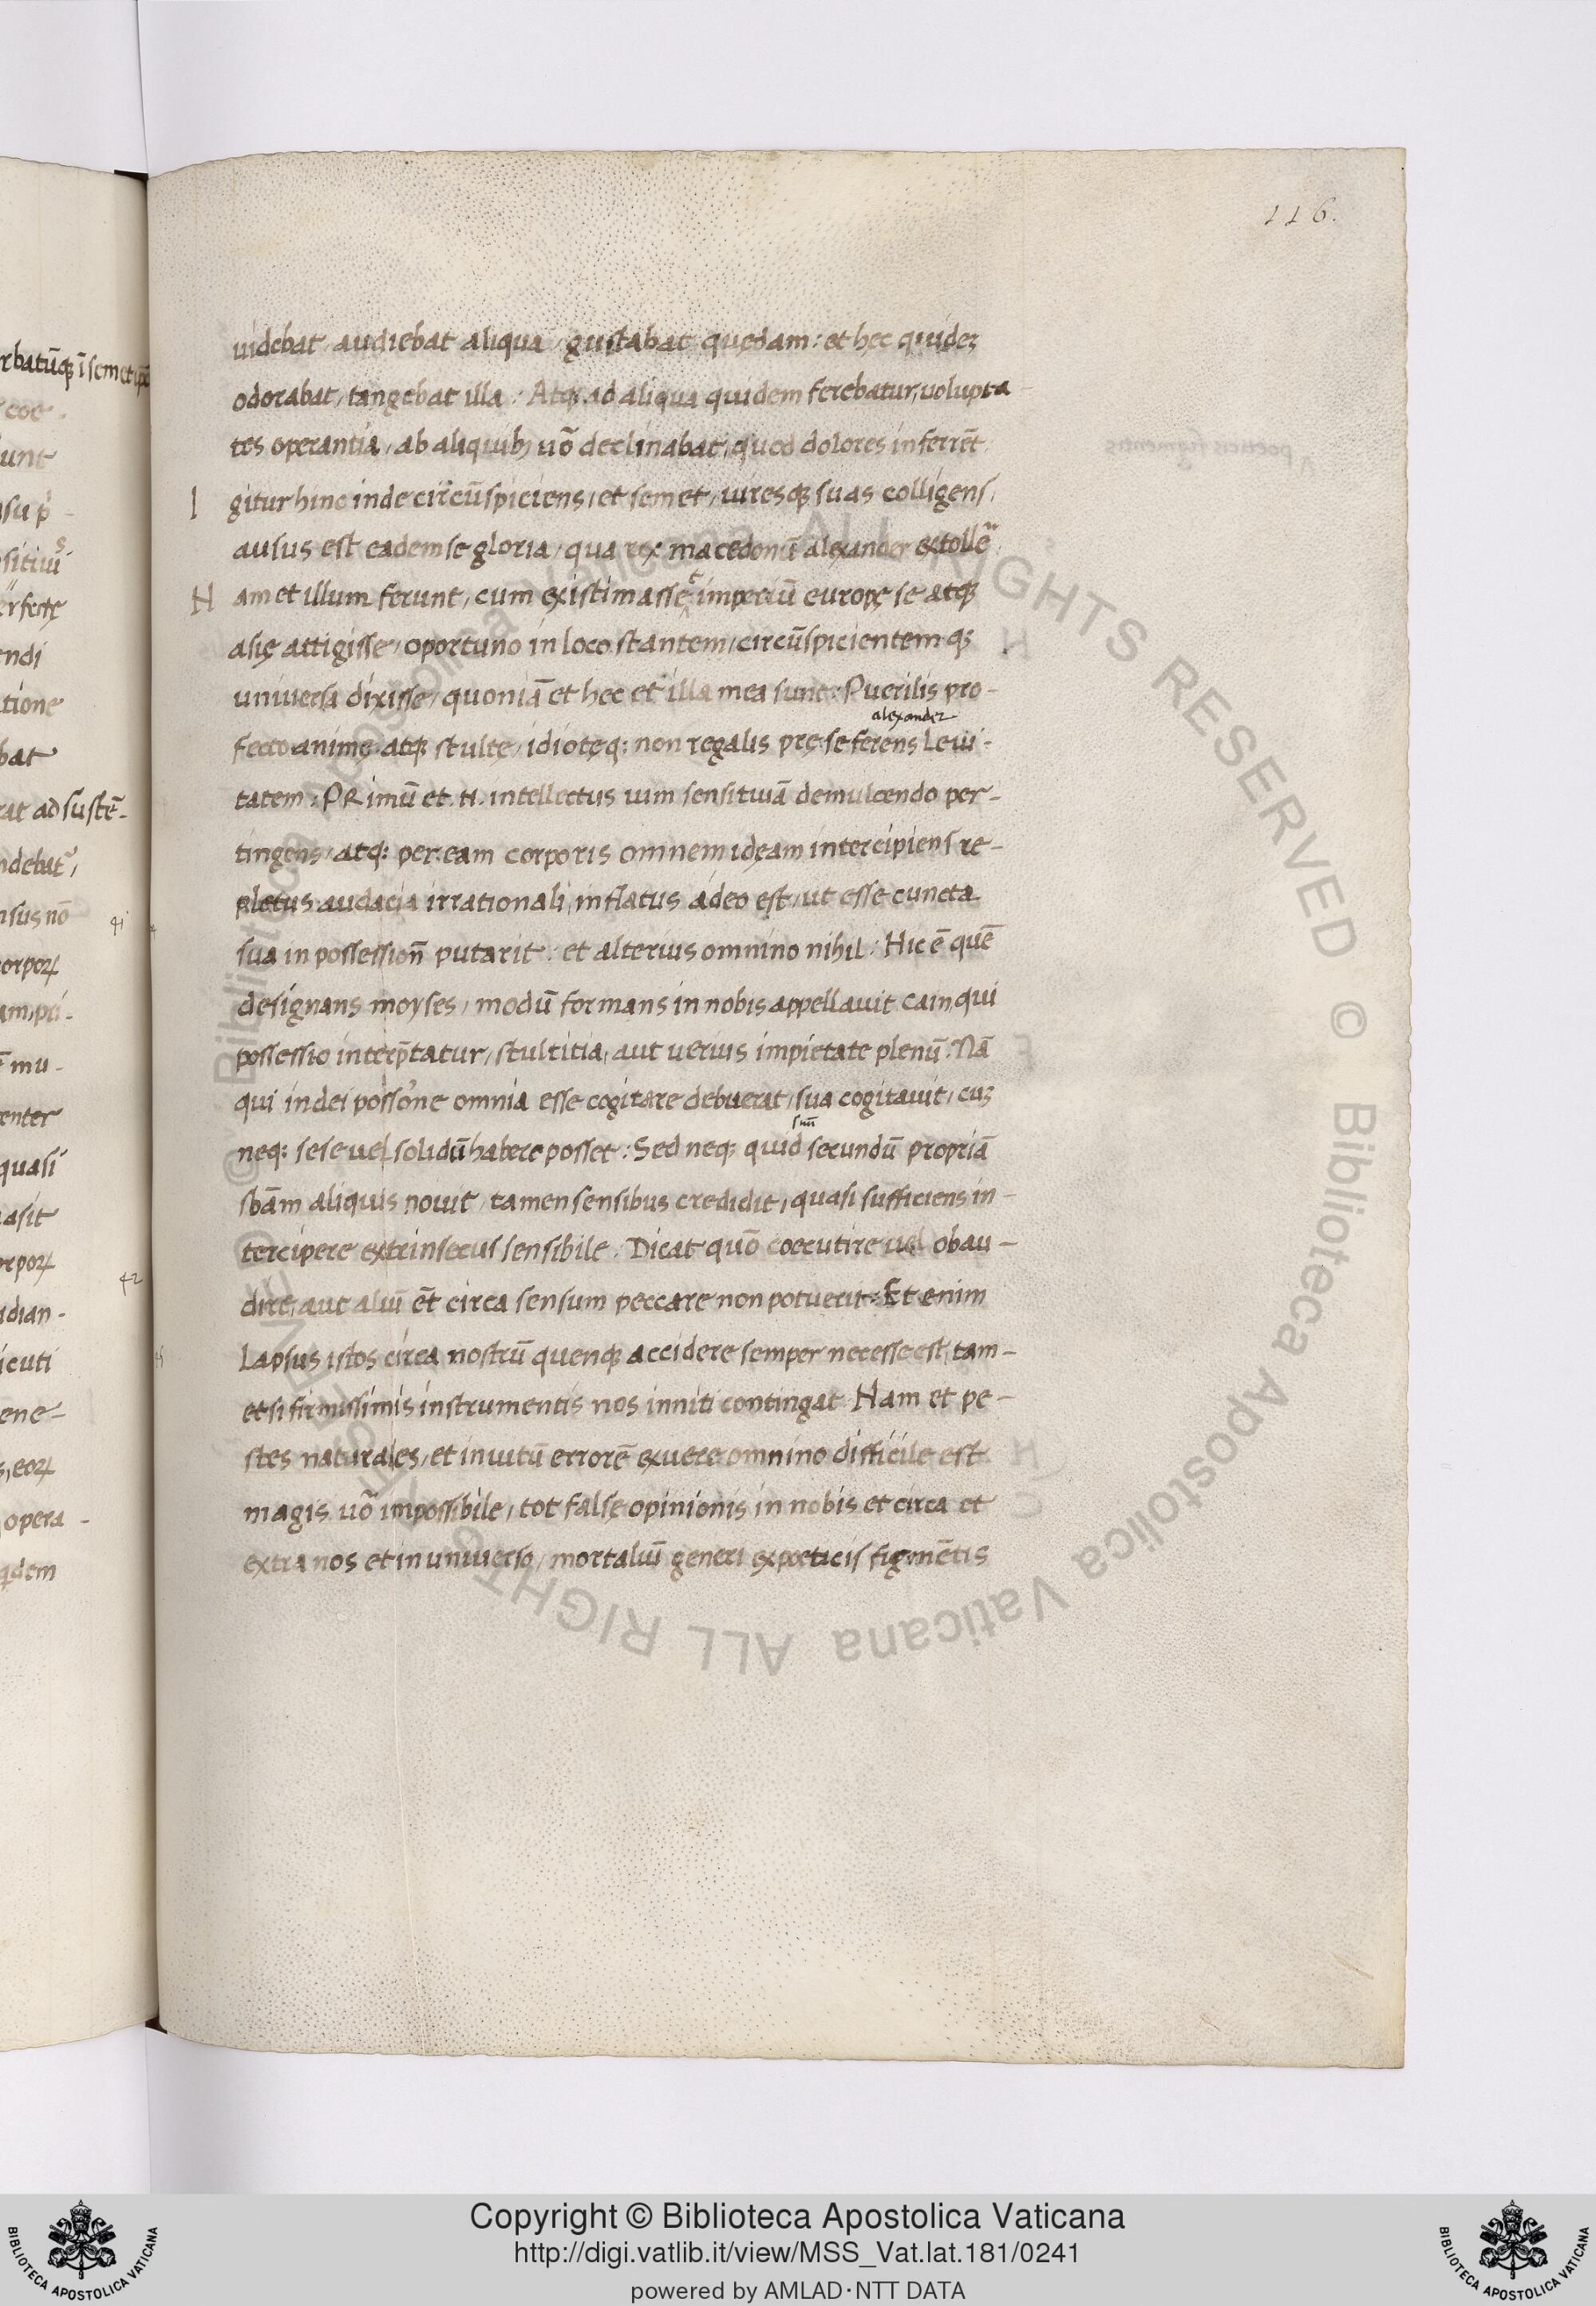 116.
uidebat, audiebat aliqua, gustabat quędam: et hęc quideʒ
odorabat, tangebat illa: Atqꝫ ad aliqua quidem ferebatur, uolupta
tes operantia, ab aliquibꝫ uo᷒̄ declinabat, quod dolores inferrēt.
I gitur hinc inde circūspiciens, et semet, uiresqꝫ suas colligens,
ausus est eadem se gloria, qua rex macedonū alexander extollē
N am et illum ferunt, cum existimassęt imperiū europę se atqꝫ
asię attigisse, oportuno in loco stantem, circūspicientemqꝫ
uniuersa dixisse, quoniā et hec et illa mea sunt: Puerilis pro-
alexander
fecto animę atqꝫ stultę, idiotęqꝫ: non regalis pre se ferens Leui-
tatem: PRimū et .N. intellectus uim sensitiuā demulcendo per-
tingens, atqꝫ: per eam corporis omnem idęam intercipiens re-
pletus audacia irrationali, inflatus adeo est, ut esse cuncta
sua in possession̄ putarit: et alterius omnino nihil: Hic ē quē
designans moyses, modū formans in nobis appellauit cain, qui
possessio interp̄tatur, stultitia, aut uerius impietate plenū: Nā
qui in dei posso᷒ne omnia esse cogitare debuerat, sua cogitauit, cuʒ
neqꝫ: sese uel solidū habere posset: Sed neqꝫ quid secundū propriā
sbām aliquis nouit, tamen sensibus credidit, quasi sufficiens in-
tercipere extrinsecus sensibile. Dicat quō coecutire uel obau-
dire, aut aliū ēt circa sensum peccare non potuerit: Et enim
Lapsus istos circa nostrū quenqꝫ accidere semper necesse est, tam-
etsi firmissimis instrumentis nos inniti contingat Nam et pe-
stes naturales, et inuitū errorē exuere omnino difficile est
magis uo᷒̄ impossibile, tot falsę opinionis in nobis et circa et
extra nos et in uniuerso, mortaliū generi ex poeticis figmētis
Copyright © Biblioteca Apostolica Vaticana
http://digi.vatlib.it/view/MSS_Vat.lat.181/0241
powered by AMLAD·NTT DATA
BIBLIOTECA APOSTOLICA VATICANA
BIBLIOTECA APOSTOLICA VATICANA